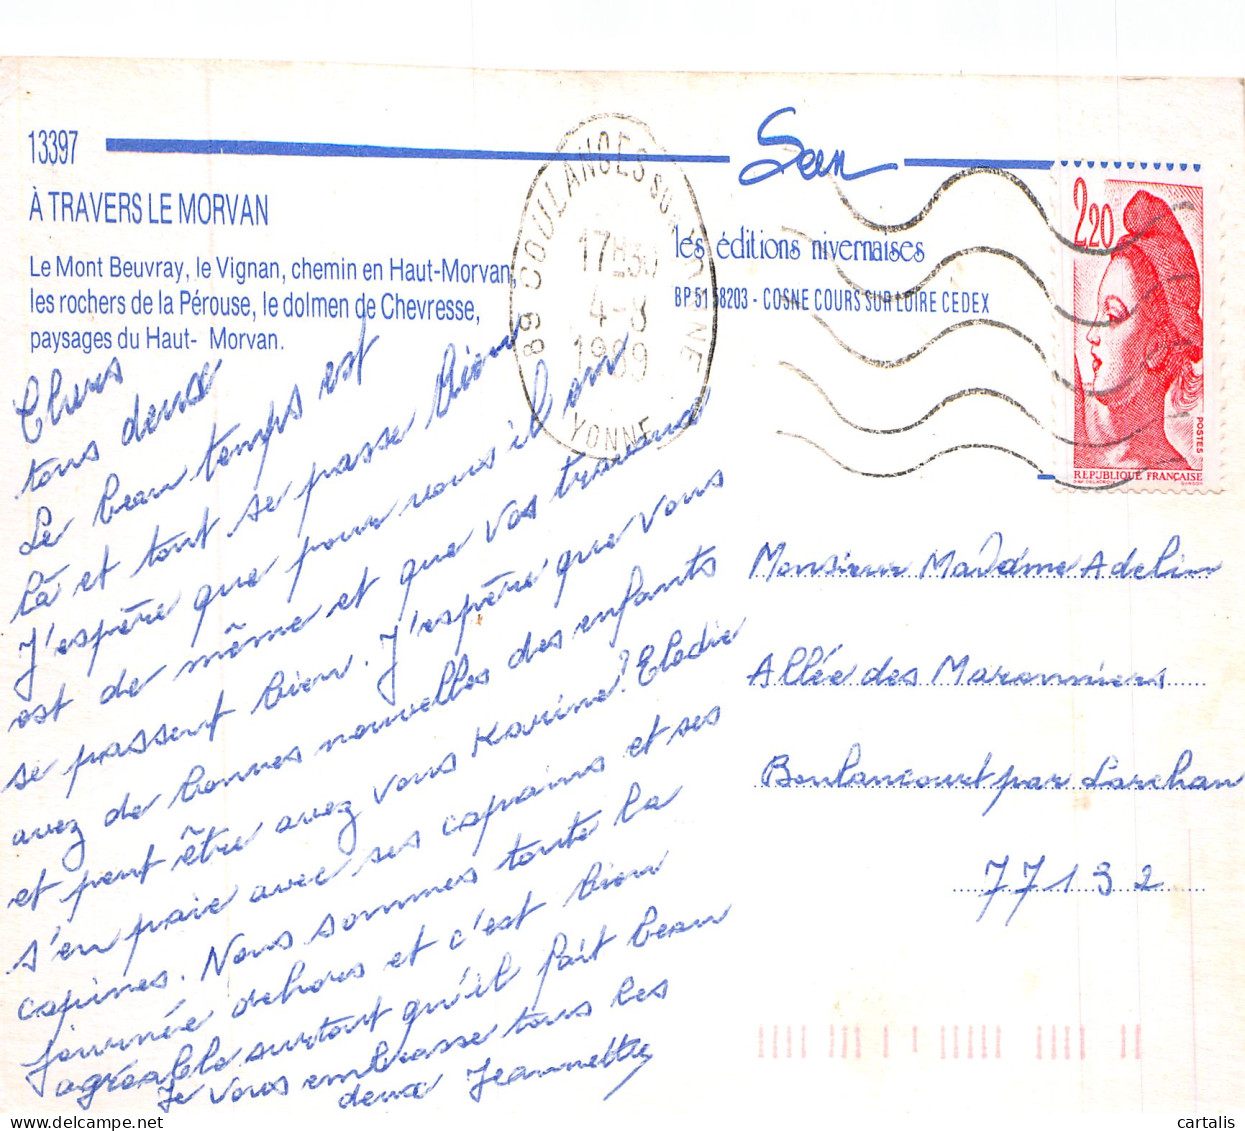 13397
À TRAVERS LE MORVAN
Le Mont Beuvray, le Vignan, chemin en Haut-Morvan,
les rochers de la Pérouse, le dolmen de Chevresse,
paysages du Haut- Morvan.
les éditions nivernaises
BP 51 58203 - COSNE COURS SUR LOIRE CEDEX
89 COULANGES SUR YONNE
17H30
4-8
1989
YONNE
2,20
POSTES
REPUBLIQUE FRANÇAISE
Chers
tous deux
Le beau temps est
là et tout se passe bien
J'espère que pour vous il en
est de même et que vos travaux
se passent bien. J'espère que vous
avez de bonnes nouvelles des enfants
et peut être avez vous Karine? Elodie
s'en paie avec ses copains et ses
copines. Nous sommes toute la
journée dehors et c'est bien
agréable surtout qu'il fait beau
Je vous embrasse tous les
deux Jeannette
Monsieur Madame Adelin
Allée des Maronniers
Boulancourt par Larchan
77132
cartalis